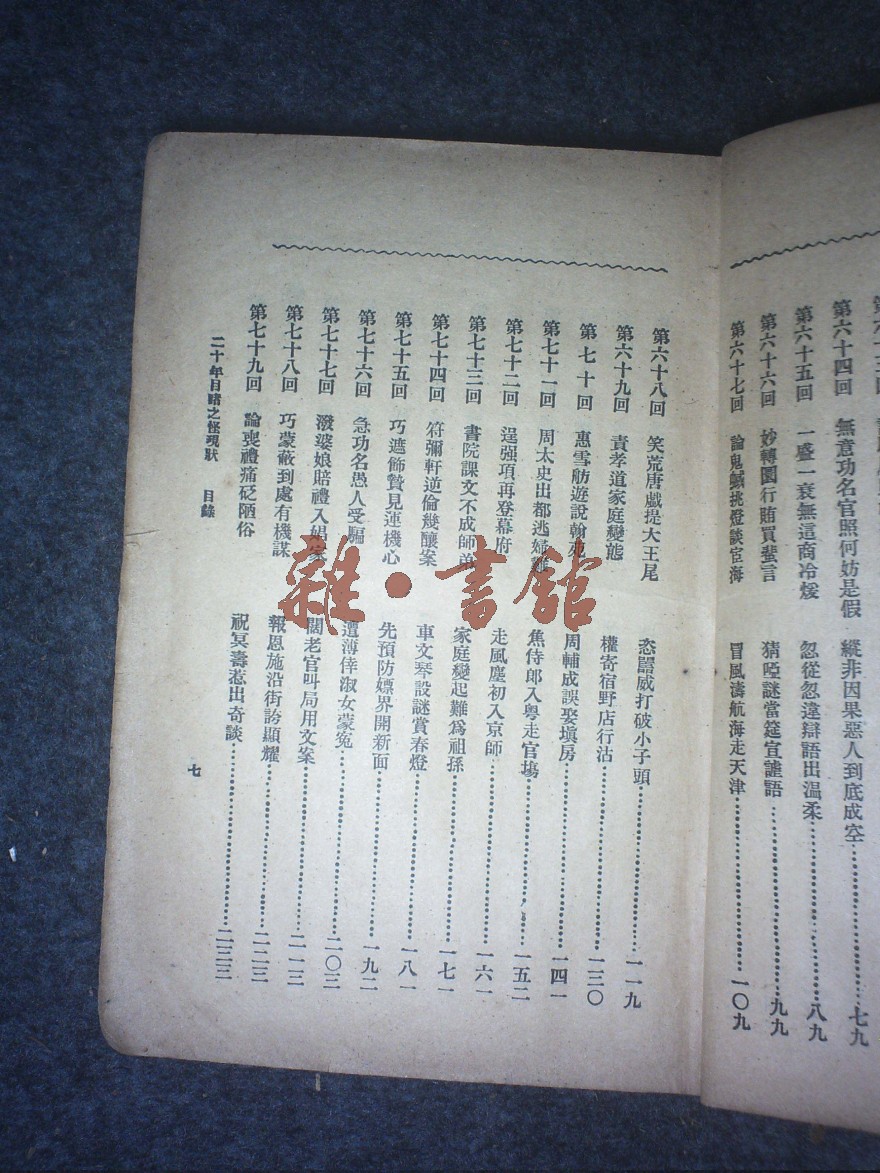 第六十四回 無意功名官照何妨是假 縱非因果惡人到底成空 七九
第六十五回 一盛一衰無這商冷煖 忽從忽違辯語出溫柔 八九
第六十六回 妙轉圜行賄買蜚言 猜啞謎當筵宣謔語 九九
第六十七回 論鬼蜮挑燈談宦海 冒風濤航海走天津 一〇九
第六十八回 笑荒唐戲提大王尾 恣囂威打破小子頭 一一九
第六十九回 責孝道家庭變態 權寄宿野店行沽 一三〇
第七十回 惠雪舫遊說翰苑 周輔成誤娶填房 一四一
第七十一回 周太史出都逃婦難 焦侍郎入粵走官塲 一五二
第七十二回 逞强項再登幕府 走風塵初入京師 一六一
第七十三回 書院課文不成師弟 家庭變起難爲祖孫 一七一
第七十四回 符彌軒逆倫幾釀案 車文琴設謎賞春燈 一八一
第七十五回 巧遮飾贄見運機心 先預防嫖界開新面 一九二
第七十六回 急功名愚人受騙 遭薄倖淑女蒙冤 二〇三
第七十七回 潑婆娘賠禮入娼家 闊老官叫局用文案 二一三
第七十八回 巧蒙蔽到處有機謀 報恩施沿街誇顯耀 二二三
第七十九回 論喪禮痛砭陋俗 祝冥壽惹出奇談 二三三
二十年目睹之怪現狀 目錄
七
雜·書館